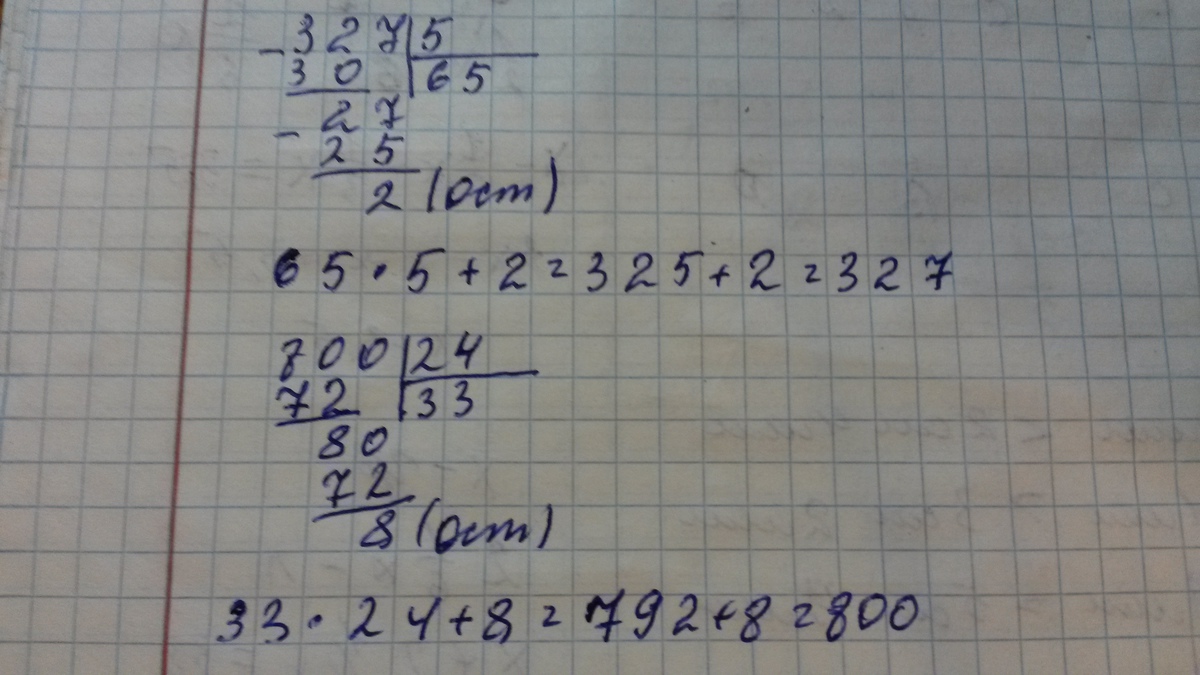 - 327 | 5
30 | 65
- 27
25
2 (ост)
65 · 5 + 2 = 325 + 2 = 327
800 | 24
72 | 33
80
72
8 (ост)
33 · 24 + 8 = 792 + 8 = 800